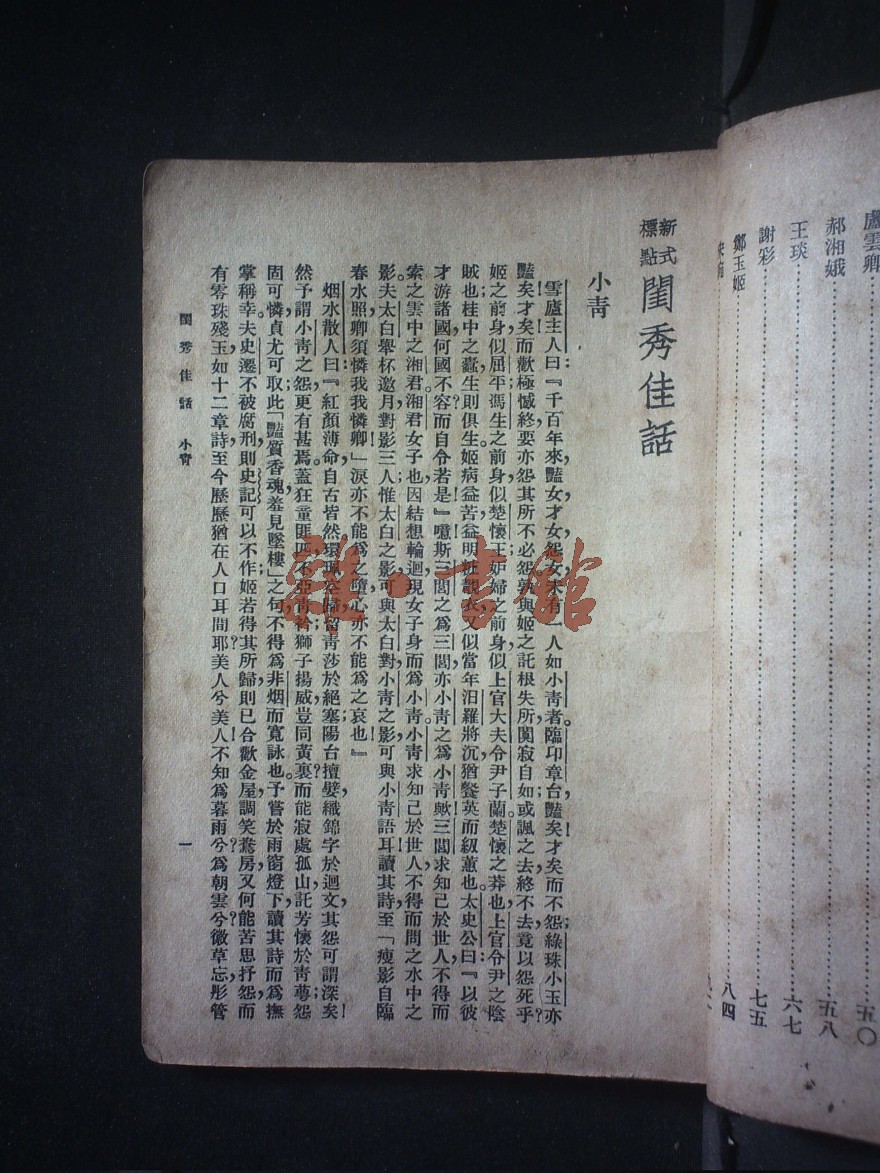 盧雲卿……五〇
郝湘娥……五八
王琰……六七
謝彩……七五
鄭玉姬……八四
新式標點 閨秀佳話
小青
雪廬主人曰：『千百年來，豔女，才女，怨女，未有一人如小青者。臨卭章台，豔矣！才矣！而不怨；綠珠小玉亦
豔矣！才矣！而歡極憾終，要亦怨其所不必怨。孰與姬之託根失所，闃寂自如，或諷之去，終不去，竟以怨死乎？
姬之前身似屈平，馮生之前身似楚懷王，妒婦之前身似上官大夫令尹子蘭。楚懷之莽也，上官令尹之陰
賊也；桂中之蠹，生則俱生。姬病益苦，益明粧靚衣，又似當年汨羅將沉，猶餐英而紉蕙也。太史公曰：『以彼
才游諸國，何國不容？而自令若是！』噫！斯三閭之為三閭，亦小青之為小青歟！三閭求知己於世人不得，而
索之雲中之湘君。湘君女子也，因結想輪迴，現女子身而為小青。小青求知己於世人不得，而問之水中之
影。夫太白舉杯邀月，對影三人；惟太白之影，可與太白對，小青之影，可與小青語耳！讀其詩，至「瘦影自臨
春水照，卿須憐我我憐卿」淚亦不能為之墮，心亦不能為之哀也！』
烟水散人曰：『紅顏薄命，自古皆然，環珮空歸，留青莎於絕塞；陽台擅嬖，織錦字於迴文，其怨可謂深矣！
然予謂小青之怨，更有甚焉。蓋狂童匪匹，不亞青衿；獅子揚威，豈同黃裏？而能寂處孤山，託芳懷於青蕚，怨
固可憐，貞尤可取；此「豔質香魂，羞見墜樓」之句，不得為非烟而寬詠也。予嘗於雨窗燈下，讀其詩而為撫
掌稱幸。夫史遷不被腐刑，則史記可以不作；姬若得其所歸，則已合歡金屋，調笑鴦房，又何能苦思抒怨，而
有零珠殘玉，如十二章詩，至今歷歷猶在人口耳間耶？美人兮美人！不知為暮雨兮？為朝雲兮？徽草忘彤管
閨秀佳話　小青
一
雜·書館